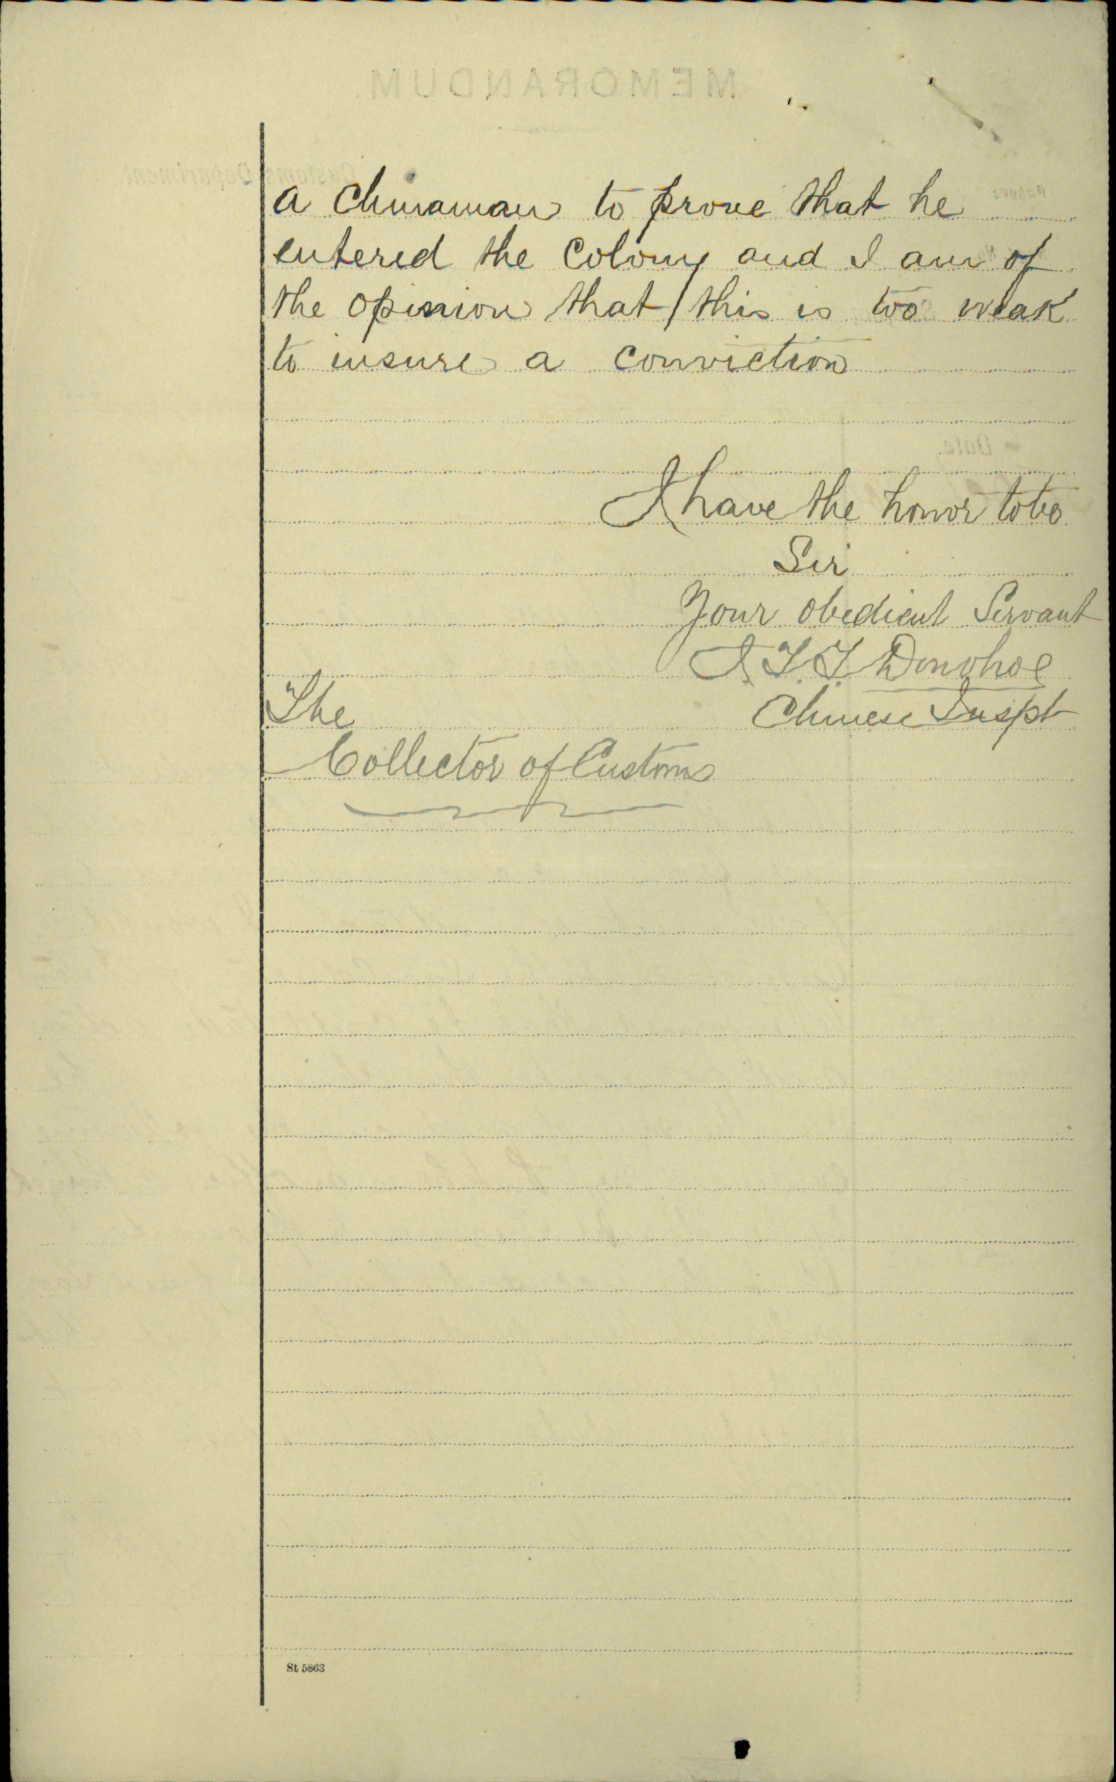 a Chinaman to prove that he
entered the Colony and I am of
the opinion that this is too weak
to insure a conviction
I have the honor to be
Sir
Your obedient Servant
J. T. T. Donohoe
Chinese Inspt
The
Collector of Customs
St 5863